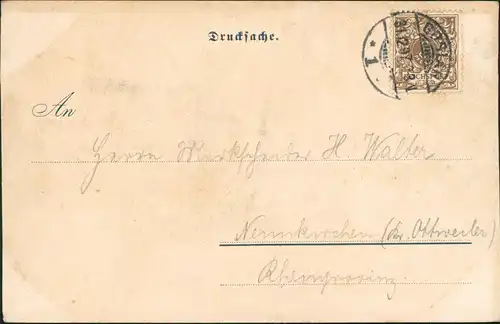 Drucksache.
31.12.97
* 1 *
An
Herrn Markscheider H. Walter
Neunkirchen (Kr. Ottweiler)
Rheinprovinz.